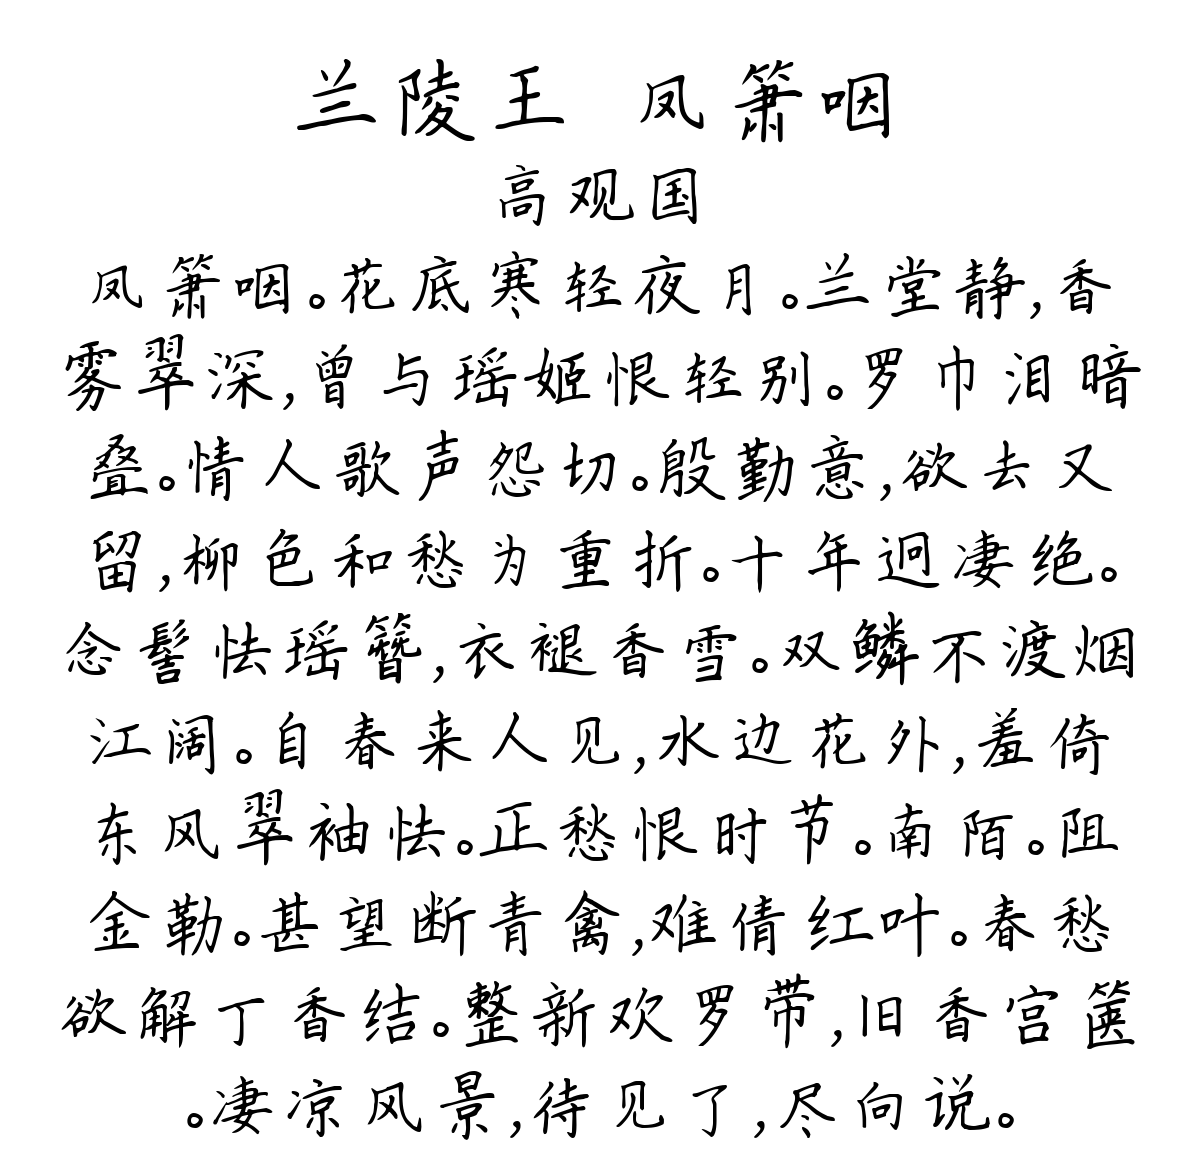 兰陵王 凤箫咽
高观国
凤箫咽。花底寒轻夜月。兰堂静,香
雾翠深,曾与瑶姬恨轻别。罗巾泪暗
叠。情人歌声怨切。殷勤意,欲去又
留,柳色和愁为重折。十年迥凄绝。
念髻怯瑶簪,衣褪香雪。双鳞不渡烟
江阔。自春来人见,水边花外,羞倚
东风翠袖怯。正愁恨时节。南陌。阻
金勒。甚望断青禽,难倩红叶。春愁
欲解丁香结。整新欢罗带,旧香宫箧
。凄凉风景,待见了,尽向说。